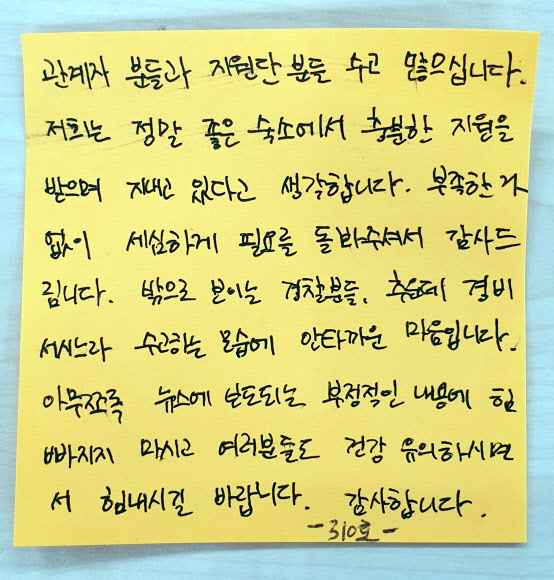 관계자 분들과 지원단 분들 수고 많으십니다.
저희는 정말 좋은 숙소에서 충분한 지원을
받으며 지내고 있다고 생각합니다. 부족한 거
없이 세심하게 필요를 돌봐주셔서 감사드
립니다. 밖으로 보이는 경찰분들, 추운데 경비
서시느라 수고하는 모습에 안타까운 마음입니다.
아무쪼록 뉴스에 보도되는 부정적인 내용에 힘
빠지지 마시고 여러분들도 건강 유의하시면
서 힘내시길 바랍니다. 감사합니다.
-310호-